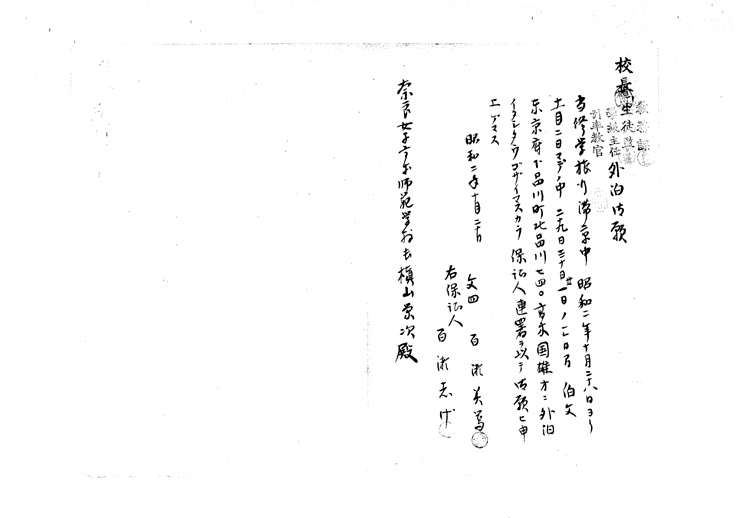 校長
教務課
生徒
学級主任
引率教官
外泊御願
首修学旅行滞京中 昭和二年十月二十八日ヨリ
十一月二日マデノ中 二十九日三十日
東京府下品川町北品川七四〇 国雄方ニ外泊
イタシタウゴザイマスカラ 保証人連署ヲ以テ御願ヒ申
エゲマス
昭和二年十月二十日
文四 百瀬
右保証人
百瀬
奈良女子高等師範学校長槙山栄次殿